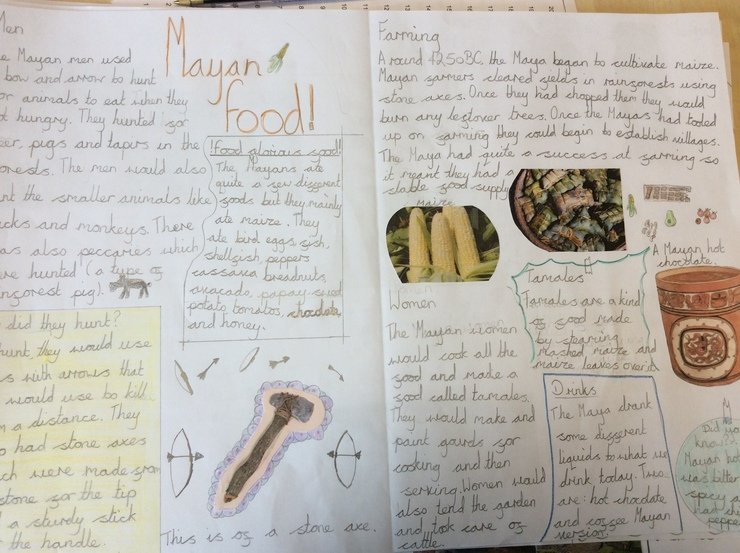 Men
The Mayan men used
bow and arrow to hunt
for animals to eat when they
got hungry. They hunted for
deer, pigs and tapirs in the
forests. The men would also
hunt the smaller animals like
ducks and monkeys. There
was also peccaries which
were hunted (a type of
rainforest pig).
did they hunt?
hunt they would use
s with arrows that
would use to kill
m a distance. They
o had stone axes
ch were made from
stone for the tip
a sturdy stick
r the handle.
Mayan
food!
!food glorious food!
The Mayans ate
quite a few different
foods but they mainly
ate maize. They
ate bird eggs, fish,
shellfish, peppers
cassava breadnuts,
avacado, papay
potato, tomatos, chocolate
and honey.
This is of a stone axe.
Farming
A round 4250BC, the Maya began to cultivate maize.
Mayan farmers cleared fields in rainforests using
stone axes. Once they had chopped them they would
burn any leftover trees. Once the Mayas had tooled
up on farming they could begin to establish villages.
The Maya had quite a success at farming so
it meant they had a
stable food supply
Maize
A Mayan hot
chocolate.
Tamales
Tamales are a kind
of food made
by steaming
mashed maize and
maize leaves over it.
Women
The Mayan women
would cook all the
food and made a
food called tamales.
They would make and
paint gourds for
cooking and then
serving. Women would
also tend the garden
and took care of
cattle.
Drinks
The Maya drank
some different
liquids to what we
drink today. Two
are: hot chocolate
and coffee Mayan
version.
Did yo
know
Mayan hot
was bitter
spicy a
had chi
peppe